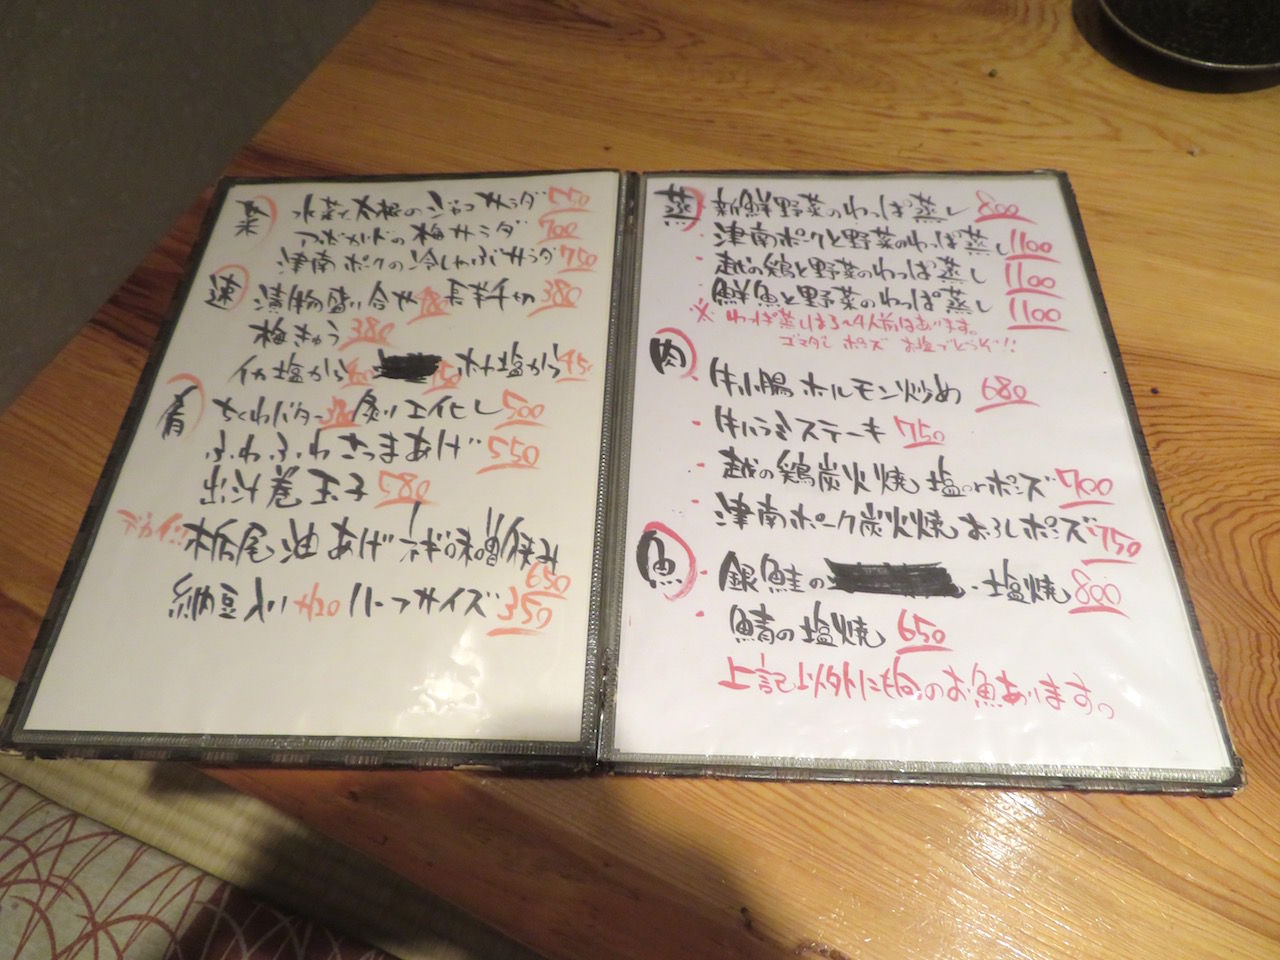 菜 水菜と大根のジャコサラダ 750
アボカドの梅サラダ 700
津南ポークの冷しゃぶサラダ 750
速 漬物盛り合わせ 長芋千切 380
梅きゅう 380
イカ塩から ホヤ塩から
肴 ちくわバター 炙りエイヒレ 500
ふわふわさつまあげ 550
出汁巻玉子 580
デカイ!! 栃尾油あげ ネギ味噌焼き 650
納豆入り ハーフサイズ 350
蒸 新鮮野菜のわっぱ蒸し 800
・津南ポークと野菜のわっぱ蒸し 1100
・越の鶏と野菜のわっぱ蒸し 1100
・鮮魚と野菜のわっぱ蒸し 1100
※わっぱ蒸しは3〜4人前はあります。
ゴマダレ ポンズ お塩でどうぞ!!
肉 牛小腸ホルモン炒め 680
・牛ハラミステーキ 750
・越の鶏炭火焼 塩orポンズ 700
・津南ポーク炭火焼おろしポンズ 750
魚 ・銀鮭の ・塩焼 800
・鯖の塩焼 650
上記以外にも旬のお魚あります。